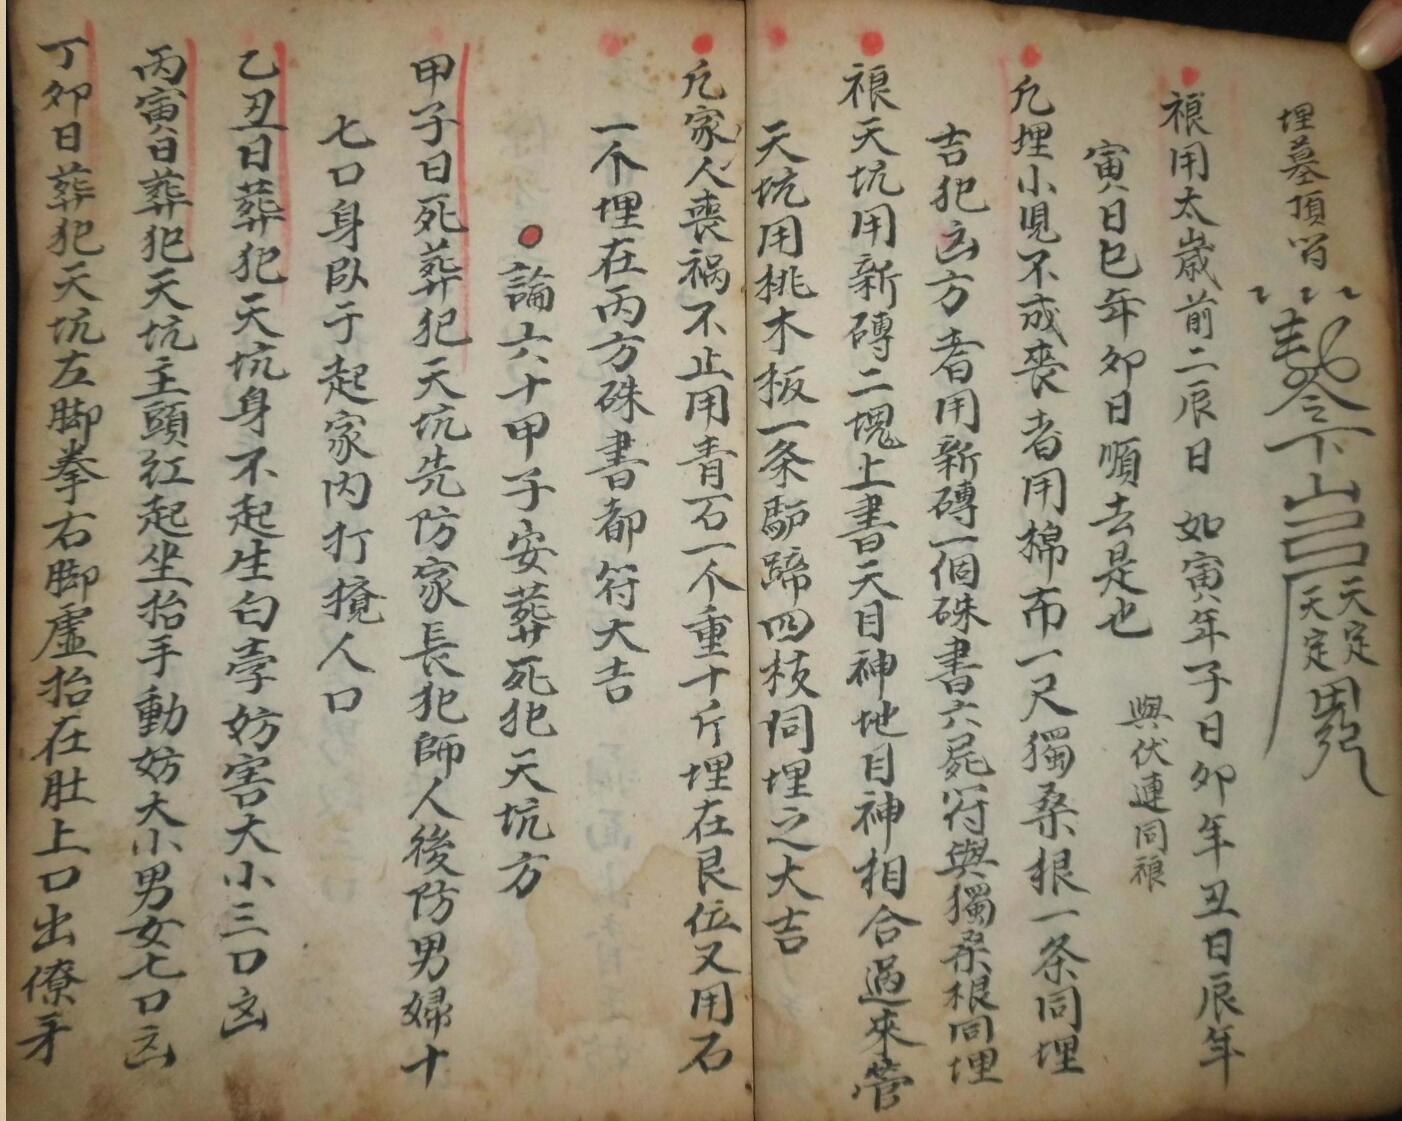 埋墓頂符
天定
天定
䘶用太歲前二辰日 如寅年子日卯年丑日辰年
寅日巳年卯日順去是也
與伏連同䘶
凢埋小児不成喪者用棉布一尺獨桑根一条同埋
吉犯凶方者用新磚一個硃書六屍符與獨桑根同埋
䘶天坑用新磚二塊上書天目神地目神相合過來管
天坑用桃木板一条馿蹄四枝同埋之大吉
凢家人喪禍不止用青石一个重十斤埋在艮位又用石
一个埋在丙方硃書都符大吉
論六十甲子安葬死犯天坑方
甲子日死葬犯天坑先防家長犯師人後防男婦十
七口身臥于起家内打攪人口
乙丑日葬犯天坑身不起生白孛妨害大小三口凶
丙寅日葬犯天坑主頭红起坐抬手動妨大小男女七口凶
丁卯日葬犯天坑左脚拳右脚虚抬在肚上口出僚牙